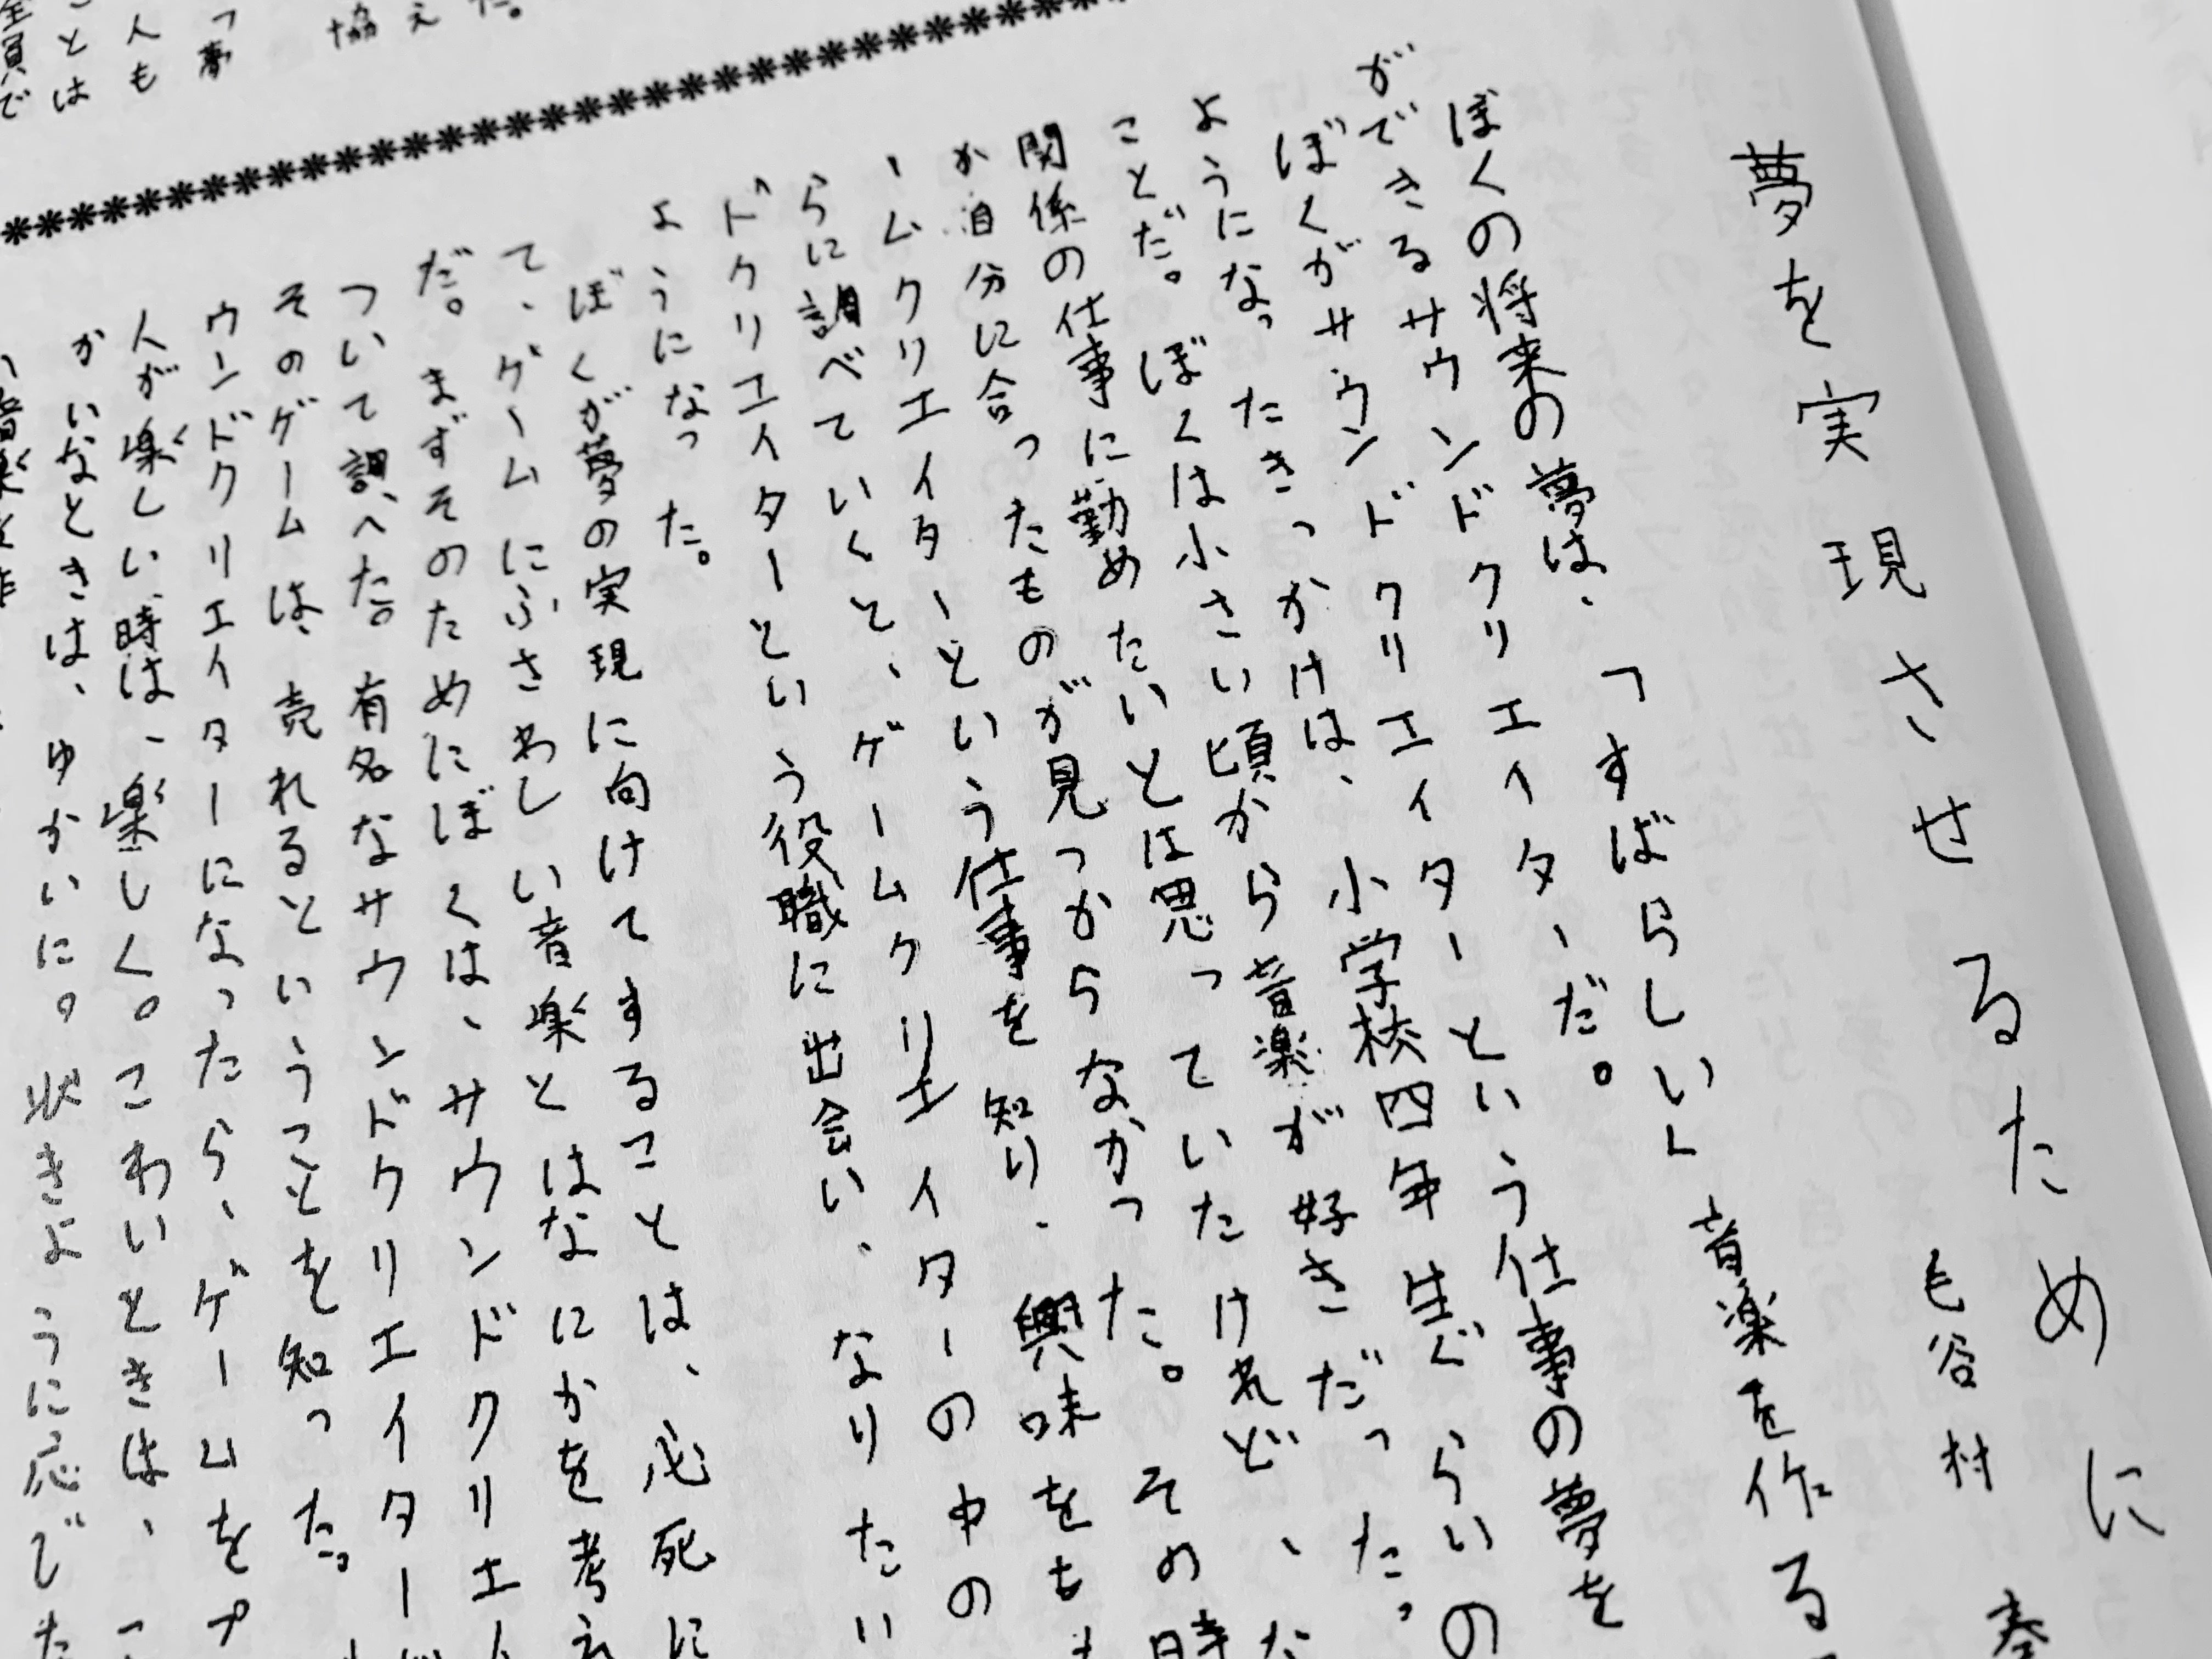 夢を実現させるために
毛谷村
ぼくの将来の夢は、「すばらしい」音楽を作る
ができるサウンドクリエイターだ。
ぼくがサウンドクリエイターという仕事の夢を
ようになったきっかけは、小学校四年生ぐらいの
ことだ。ぼくは小さい頃から音楽が好きだった。
関係の仕事に勤めたいとは思っていたけれど、な
か自分に合ったものが見つからなかった。その時
ームクリエイターという仕事を知り、興味をも
らに調べていくと、ゲームクリエイターの中の
ドクリエイターという役職に出会い、なりたい
ようになった。
ぼくが夢の実現に向けてすることは、必死に
て、ゲームにふさわしい音楽とはなにかを考え
だ。まずそのためにぼくは、サウンドクリエイ
ついて調べた。有名なサウンドクリエイター
そのゲームは、売れるということを知った。
ウンドクリエイターになったら、ゲームをプ
人が楽しい時は、楽しく。こわいときは、こ
かいなときは、ゆかいに。状きように応じた
い音楽を作
協え
た。
つ夢
人も
ことは
全員で